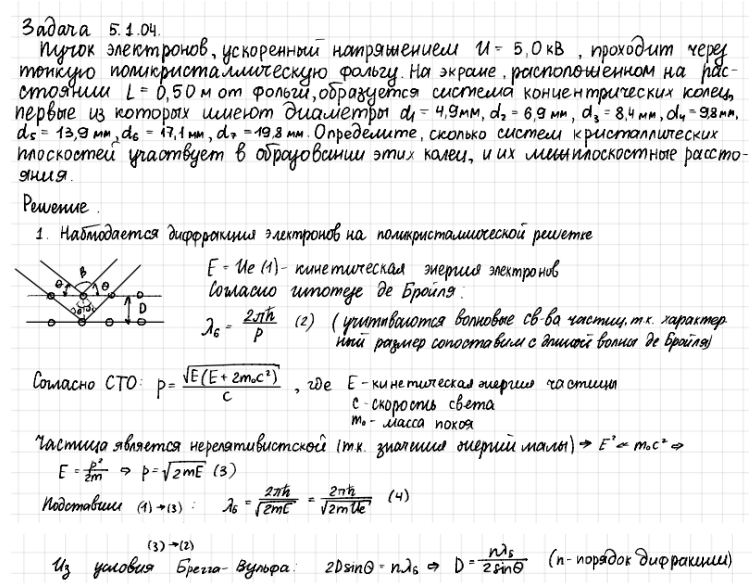 Задача 5.1.04.
Пучок электронов, ускоренный напряжением U = 5,0 кВ, проходит через
тонкую поликристаллическую фольгу. На экране, расположенном на рас-
стоянии L = 0,50 м от фольги, образуется система концентрических колец,
первые из которых имеют диаметры d₁ = 4,9 мм, d₂ = 6,9 мм, d₃ = 8,4 мм, d₄ = 9,8 мм,
d₅ = 13,9 мм, d₆ = 17,1 мм, d₇ = 19,8 мм. Определите, сколько систем кристаллических
плоскостей участвует в образовании этих колец, и их межплоскостные рассто-
яния.
Решение.
1. Наблюдается дифракция электронов на поликристаллической решетке
E = Ue (1) - кинетическая энергия электронов
Согласно гипотезе де Бройля:
λ_Б = 2πħ/p (2) (учитываются волновые св-ва частиц, т.к. характер
ный размер сопоставим с длиной волны де Бройля)
B
θ θ
θ θ
D
Согласно СТО: p = √(E(E + 2m₀c²))/c, где E - кинетическая энергия частицы
c - скорость света
m₀ - масса покоя
Частица является нерелятивистской (т.к. значения энергий малы) → E ≪ m₀c² ⇒
E = p²/2m ⇒ p = √(2mE) (3)
Подставим (1)→(3): λ_Б = 2πħ/√(2mE) = 2πħ/√(2mUe) (4)
(3)→(2)
Из условия Брегга-Вульфа: 2D sinθ = nλ_Б ⇒ D = nλ_Б/(2 sinθ) (n - порядок дифракции)